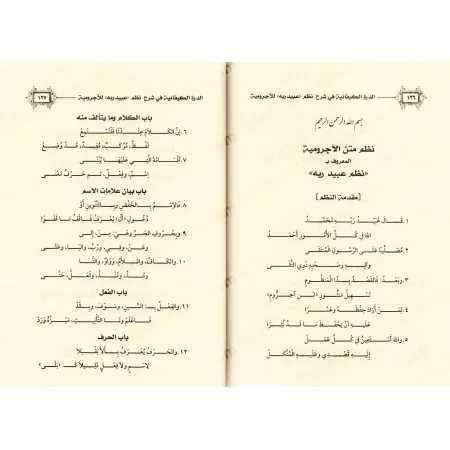 الدرة الكيفانية في شرح نظم «عبيد ربه» للآجرومية
١٢٦
بسم الله الرحمن الرحيم
نظم متن الآجرومية
المعروف بـ
«نظم عبيد ربه»
[مقدمة النظم]
١. قَـالَ عُبَيْدُ رَبِّهِ مُحَمَّدُ
اللهَ فِي كُلِّ الْأُمُورِ أَحْمَدُ
٢. مُصَلِّيًا عَلَى الرَّسُولِ الْمُنْتَقَى
وَآلِهِ وَصَحْبِهِ ذَوِي التُّقَى
٣. وَبَعْدُ: فَالْقَصْدُ بِذَا الْمَنْظُومِ
تَسْهِيلُ مَنْثُورِ «ابْنِ آجُرُّومِ»
٤. لِمَنْ أَرَادَ حِفْظَهُ وَعَسُرَا
عَلَيْهِ أَنْ يَحْفَظَ مَا قَدْ نُثِرَا
٥. وَاللهَ أَسْتَعِينُ فِي كُلِّ عَمَلْ
إِلَيْهِ قَصْدِي وَعَلَيْهِ الْمُتَّكَلْ
الدرة الكيفانية في شرح نظم «عبيد ربه» للآجرومية
١٢٧
باب الكلام وما يتألف منه
٦. إِنَّ الْكَلَامَ عِنْدَنَا فَلْتَسْتَمِعْ
لَفْظٌ، مُرَكَّبٌ، مُفِيدٌ، قَدْ وُضِعْ
٧. أَقْسَامُهُ الَّتِي عَلَيْهَا يُبْنَى
إِسْمٌ، وَفِعْلٌ، ثُمَّ حَرْفُ مَعْنَى
باب بيان علامات الاسم
٨. فَالِاسْمُ بِالْخَفْضِ وَبِالتَّنْوِينِ أَوْ
دُخُولِ «أَلْ» يُعْرَفُ فَاقْفُ مَا قَفَوْا
٩. وَبِحُرُوفِ الْجَرِّ وَهْيَ: مِنْ، إِلَى
وَعَنْ، وَفِي، وَرُبَّ، وَالْبَا، وَعَلَى
١٠. وَالْكَافُ، وَاللَّامُ، وَوَاوٌ، وَالتَّا
وَمُذْ، وَمُنْذُ، وَلَعَلَّ، حَتَّى
باب الفعل
١١. وَالْفِعْلُ بِـ: السِّينِ، وَسَوْفَ، وَبِقَدْ
فَاعْلَمْ وَتَا التَّأْنِيثِ، مَيْزُهُ وَرَدْ
باب الحرف
١٢. وَالْحَرْفُ يُعْرَفُ بِأَلَّا يَقْبَلَا
لِاسْمٍ وَلَا فِعْلٍ دَلِيلًا كَـ: «بَلَى»